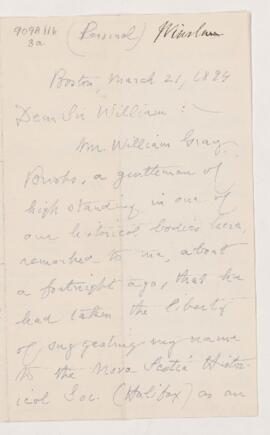 909A/16
3a
(Personal) Winslow
Boston, March 21, 1884
Dear Sir William :
Mr. William Gray
a gentleman of
high standing in one of
our historical bodies here,
remarked to me, about
a fortnight ago, that he
had taken the liberty
of suggesting my name
to the Nova Scotia Histor-
ical Soc. (Halifax) as an